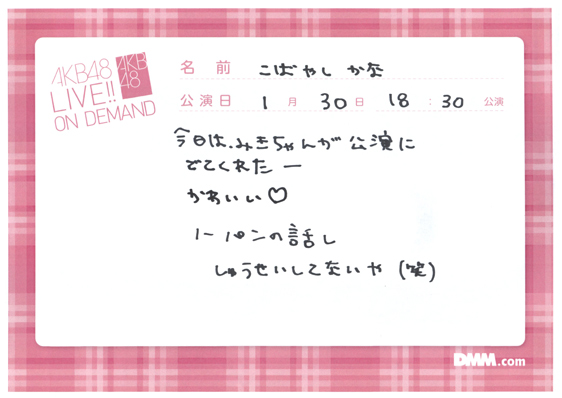 AKB48
LIVE!!
ON DEMAND
AKB
48
名前 こばやし かな
公演日 1月30日 18:30公演
今日は、みきちゃんが公演に
でてくれたー
かわいい♡
ノーパンの話し
しゅうせいしてないや(笑)
DMM.com